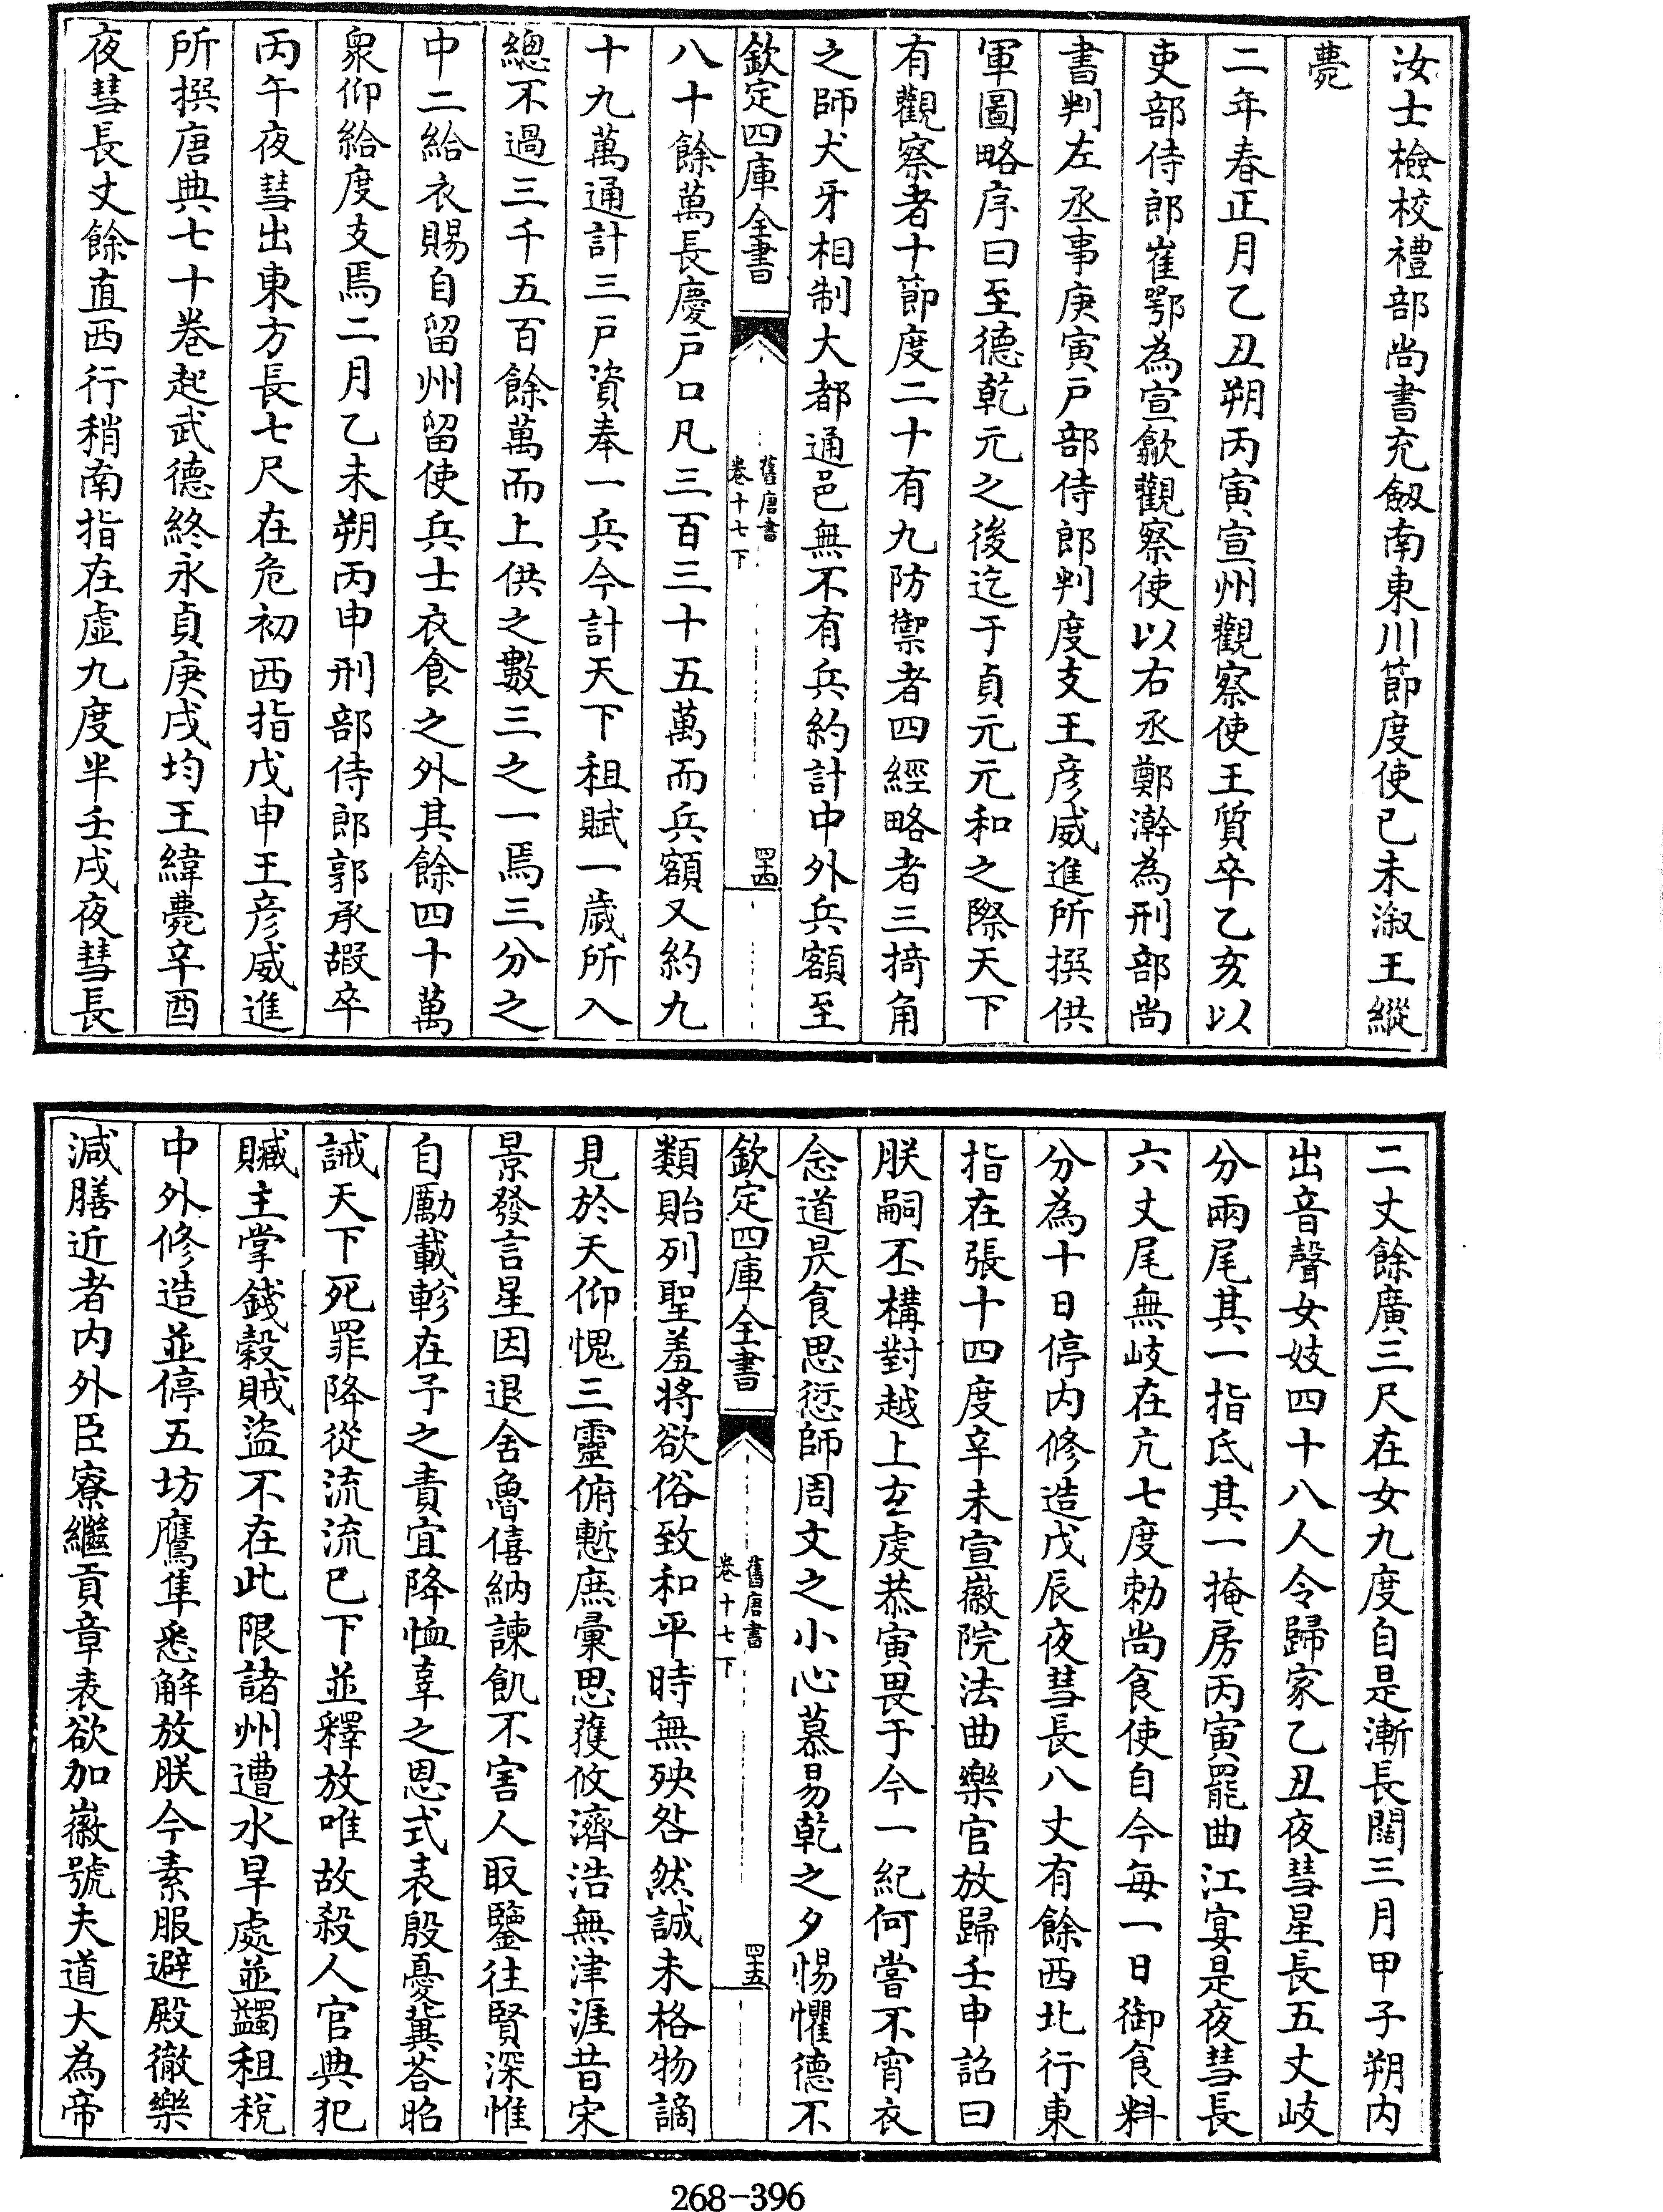 汝士檢校禮部尚書充劔南東川節度使已未淑王縱
薨
二年春正月乙丑朔丙寅宣州觀察使王質卒乙亥以
吏部侍郎崔鄂為宣歙觀察使以右丞鄭澣為刑部尚
書判左丞事庚寅戸部侍郎判度支王彦威進所撰供
軍圖略序曰至德乾元之後迄于貞元元和之際天下
有觀察者十節度二十有九防禦者四經略者三掎角
之師犬牙相制大都通邑無不有兵約計中外兵額至
欽定四庫全書
舊唐書
卷十七下
四十四
八十餘萬長慶戸口凡三百三十五萬而兵額又約九
十九萬通計三戸資奉一兵今計天下租賦一歲所入
總不過三千五百餘萬而上供之數三之一焉三分之
中二給衣賜自留州留使兵士衣食之外其餘四十萬
衆仰給度支焉二月乙未朔丙申刑部侍郎郭承嘏卒
丙午夜彗出東方長七尺在危初西指戊申王彦威進
所撰唐典七十卷起武德終永貞庚戌均王緯薨辛酉
夜彗長丈餘直西行稍南指在虛九度半壬戌夜彗長
二丈餘廣三尺在女九度自是漸長闊三月甲子朔内
出音聲女妓四十八人令歸家乙丑夜彗星長五丈岐
分兩尾其一指氐其一掩房丙寅罷曲江宴是夜彗長
六丈尾無岐在亢七度勅尚食使自今每一日御食料
分為十日停内修造戊辰夜彗長八丈有餘西北行東
指在張十四度辛未宣徽院法曲樂官放歸壬申詔曰
朕嗣丕構對越上玄虔恭寅畏于今一紀何嘗不宵衣
念道昃食思愆師周文之小心慕易乾之夕惕懼德不
欽定四庫全書
舊唐書
卷十七下
四十五
類貽列聖羞將欲俗致和平時無殃咎然誠未格物謫
見於天仰愧三靈俯慙庶彙思獲攸濟浩無津涯昔宋
景發言星因退舍魯僖納諫飢不害人取鑒往賢深惟
自勵載軫在予之責宜降恤辜之恩式表殷憂冀荅昭
誡天下死罪降從流流已下並釋放唯故殺人官典犯
贓主掌錢穀賊盜不在此限諸州遭水旱處並蠲租稅
中外修造並停五坊鷹隼悉解放朕今素服避殿徹樂
減膳近者内外臣寮繼貢章表欲加徽號夫道大為帝
268-396